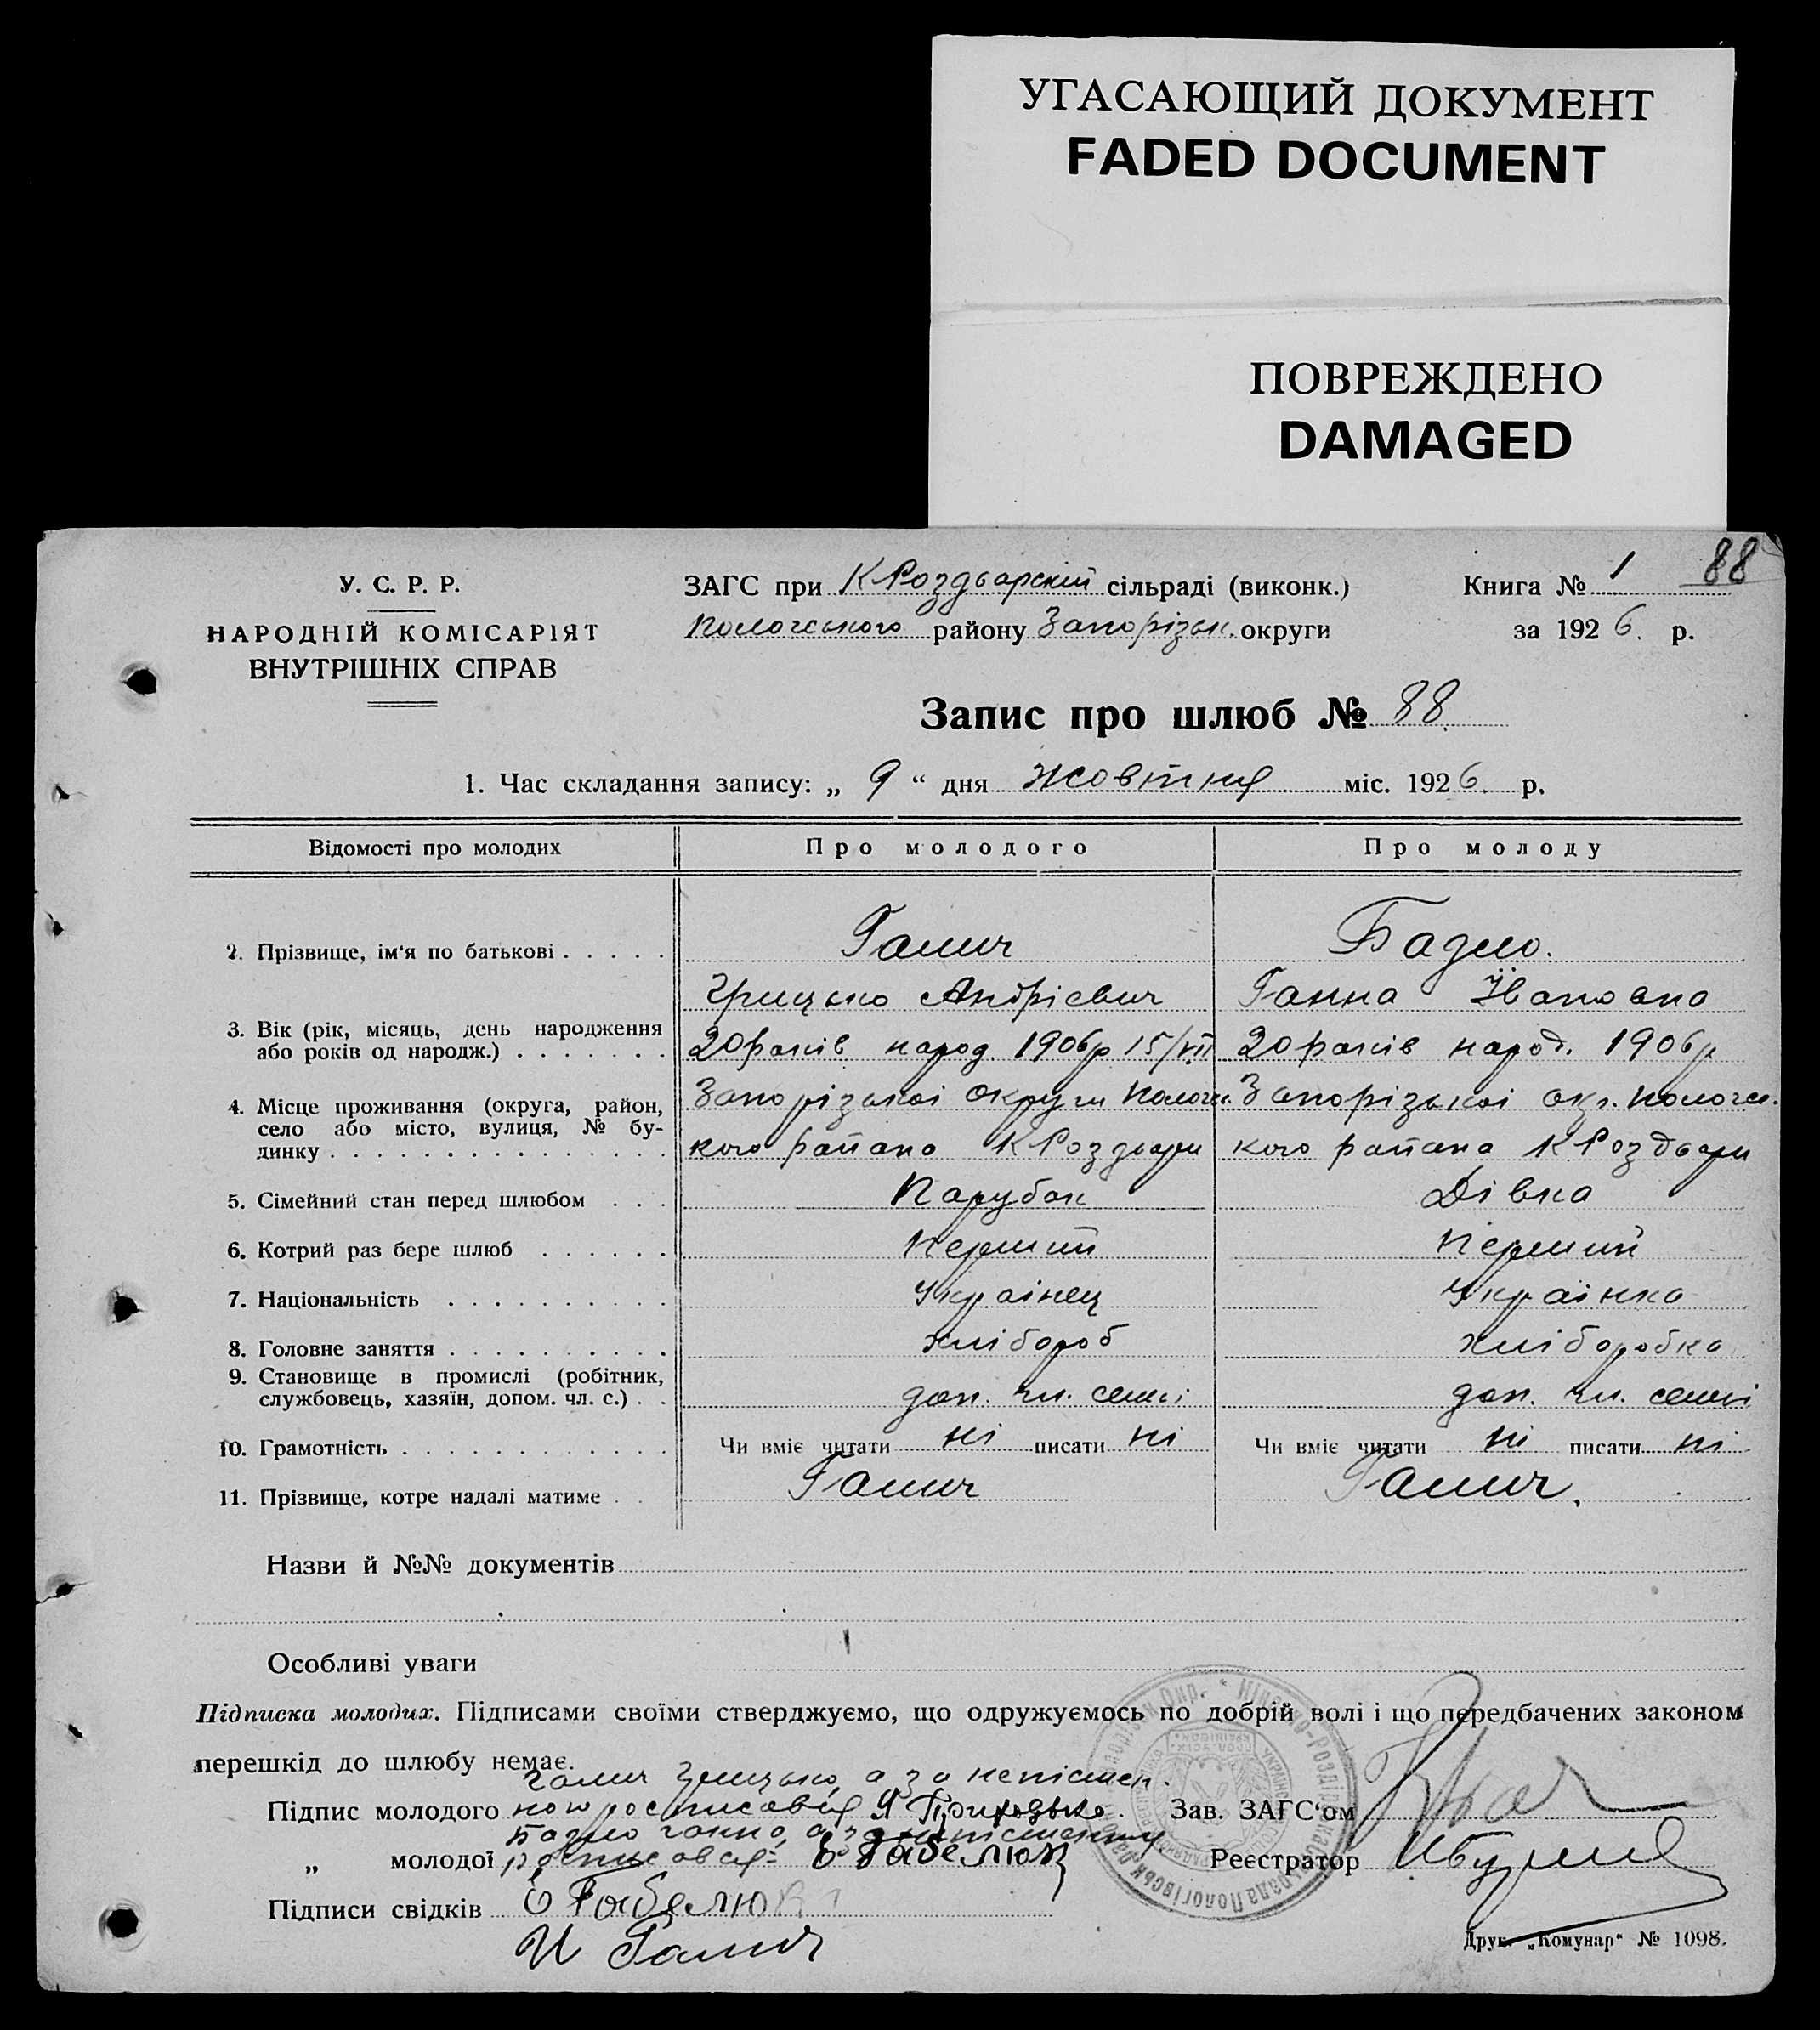 УГАСАЮЩИЙ ДОКУМЕНТ
FADED DOCUMENT
ПОВРЕЖДЕНО
DAMAGED
88
У. С. Р. Р.
НАРОДНІЙ КОМІСАРІЯТ
ВНУТРІШНІХ СПРАВ
ЗАГС при К Роздорській сільраді (виконк.)
Пологського району Запорізьк. округи
Книга № 1
за 1926. р.
Запис про шлюб № 88.
1. Час складання запису: „ 9 “ дня жовтня міс. 1926. р.
Відомості про молодих Про молодого Про молоду
2. Прізвище, ім‘я по батькові Галич Бадло.
Грицько Андрієвич Ганна Івановна
3. Вік (рік, місяць, день народження
або років од народж.) 20 років народ 1906р 15/VII 20 років народ. 1906р
4. Місце проживання (округа, район,
село або місто, вулиця, № бу-
динку Запорізькоі округи Пологс. Запорізькоі окр. Пологс.
кого района К Роздори кого района К Роздори
5. Сімейний стан перед шлюбом Парубок Дівка
6. Котрий раз бере шлюб Перший Перший
7. Національність Украінец Украінка
8. Головне заняття хлібороб хліборобка
9. Становище в промислі (робітник,
службовець, хазяїн, допом. чл. с.) доп. чл. семьі доп. чл. семьі
10. Грамотність Чи вміє читати ні писати ні Чи вміє читати ні писати ні
11. Прізвище, котре надалі матиме Галич Галич.
Назви й №№ документів
Особливі уваги
Підписка молодих. Підписами своїми стверджуємо, що одружуємось по добрій волі і що передбачених законом
перешкід до шлюбу немає.
Галич Грицько, а за неписмен.
Підпис молодого росписався Я Приходько. Зав. ЗАГС‘ом
Бадло Ганна, а за
„ молодої росписався Реєстратор
Підписи свідків
И Галич
Друк. „Комунар“ № 1098.